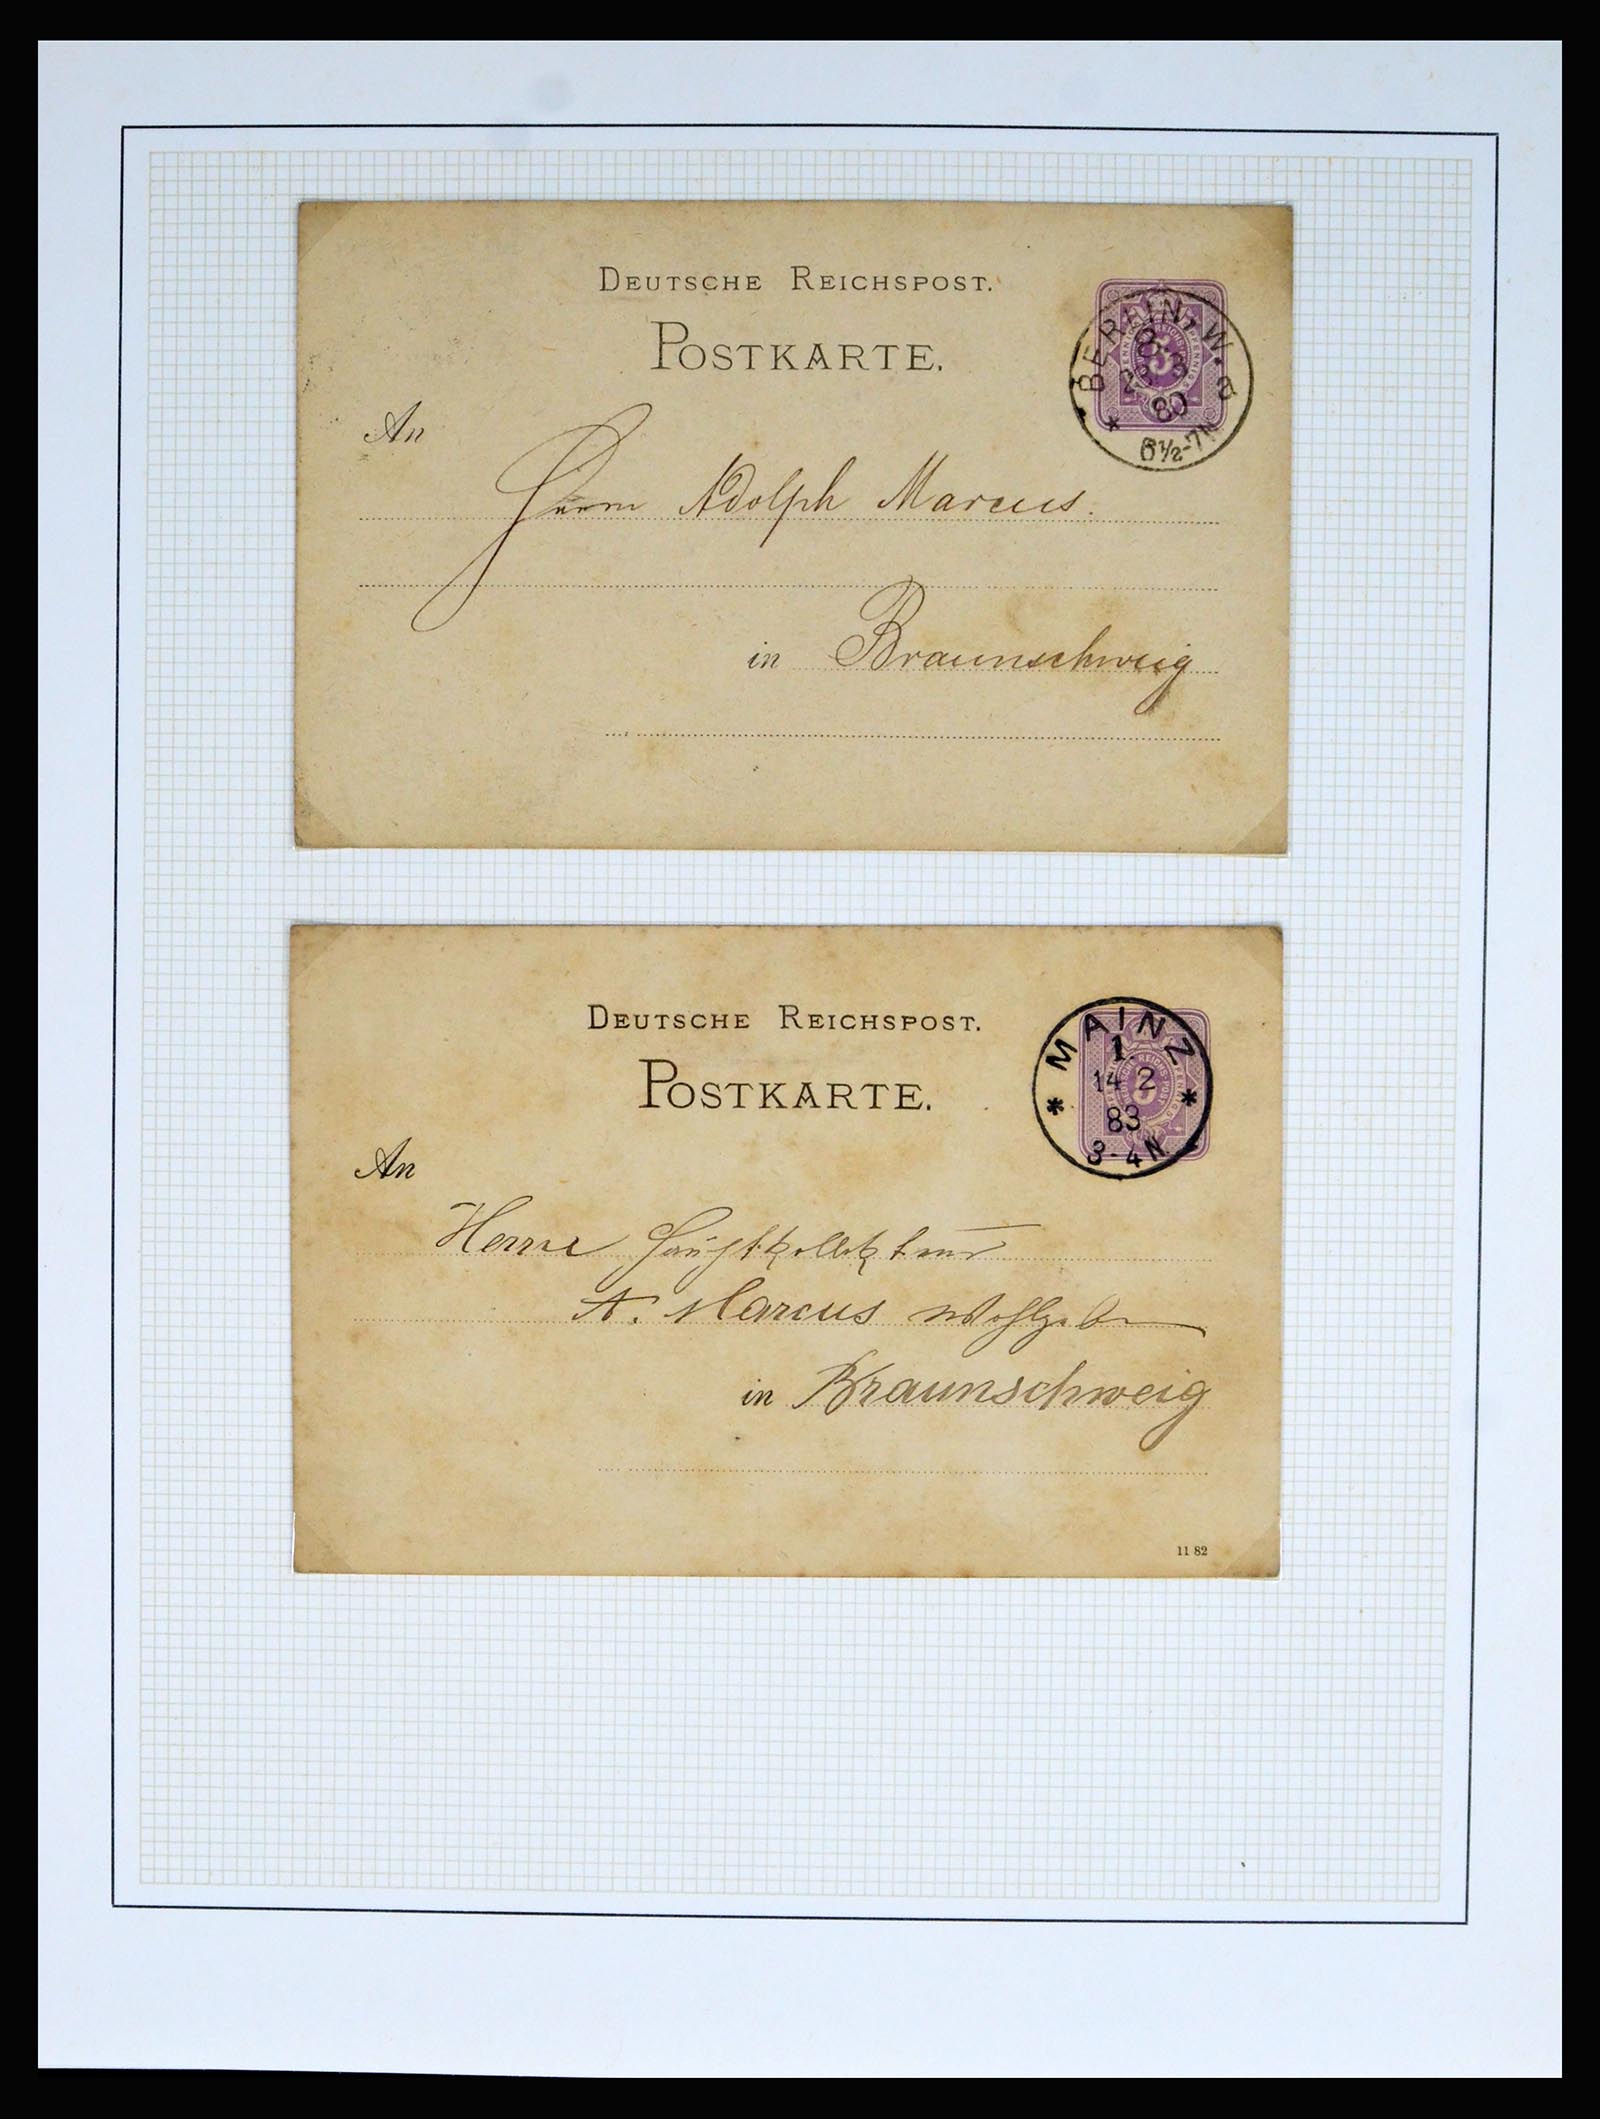 DEUTSCHE REICHSPOST.
POSTKARTE.
BERLIN, W.
8.
80
6½-7N
a
An
Herrn Adolph Marcus.
in Braunschweig
DEUTSCHE REICHSPOST.
POSTKARTE.
MAINZ
1.
14 2
83
3-4N.
An
Herrn Hauptkollekteur
A. Marcus Wohlgeboren
in Braunschweig
11 82